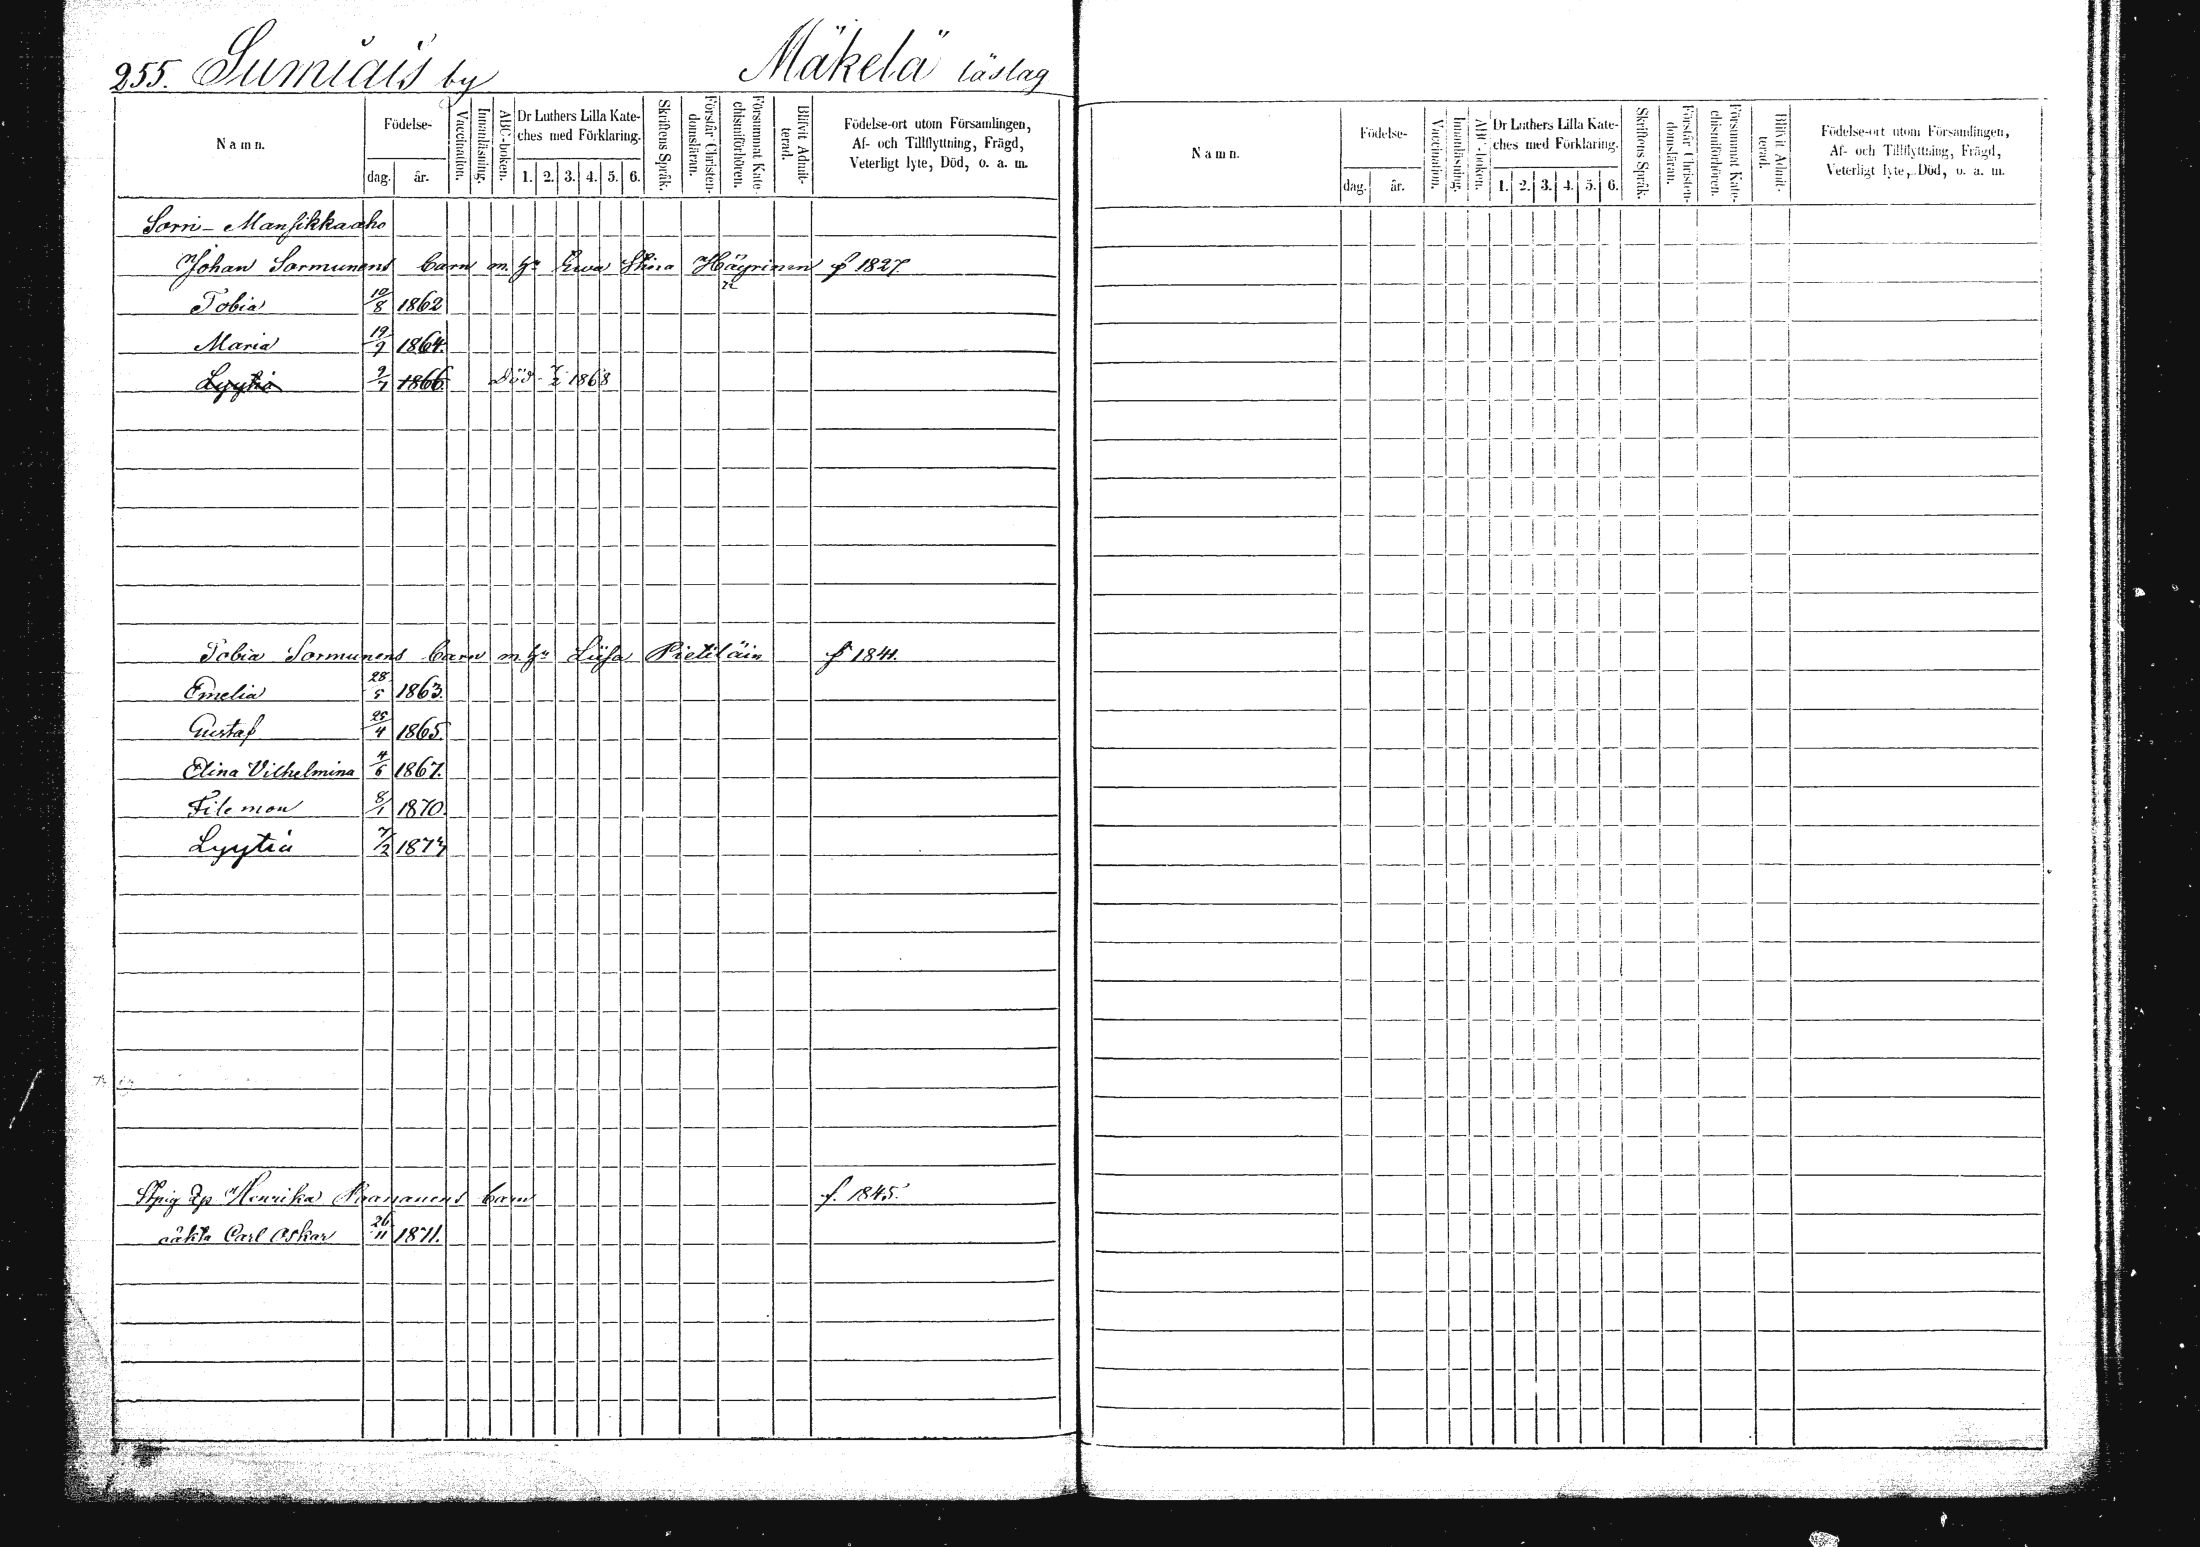 255. Sumiais by Mäkelä läslag
Namn. Födelse- dag. år. Vaccination. Innanläsning. ABC-boken. Dr Luthers Lilla Kateches med Förklaring. 1. 2. 3. 4. 5. 6. Skriftens Språk. Förstår Christendomsläran. Försummat Katechismiförhören. Blifvit Admitterad. Födelse-ort utom Församlingen, Af- och Tillflyttning, Frägd, Veterligt lyte, Död, o. a. m.
Sorri- Mansikkaaho
Johan Sormunens barn m. hu Ewa Stina Häyrinen f 1827.
Tobia 10/8 1862
Maria 19/9 1864.
Lyytia 9/7 1866 Död 7/2 1868
Tobia Sormunens barn m. hu Liisa Pietiläin f 1841.
Emelia 28/5 1863.
Gustaf 25/4 1865.
Elina Vilhelmina 4/6 1867.
Filemon 8/1 1870.
Lyytia 7/2 1873
Henrika barn f. 1845.
oäkta Carl Oskar 26/11 1871.
Namn. Födelse- dag. år. Vaccination. Innanläsning. ABC-boken. Dr Luthers Lilla Kateches med Förklaring. 1. 2. 3. 4. 5. 6. Skriftens Språk. Förstår Christendomsläran. Försummat Katechismiförhören. Blifvit Admitterad. Födelse-ort utom Församlingen, Af- och Tillflyttning, Frägd, Veterligt lyte, Död, o. a. m.